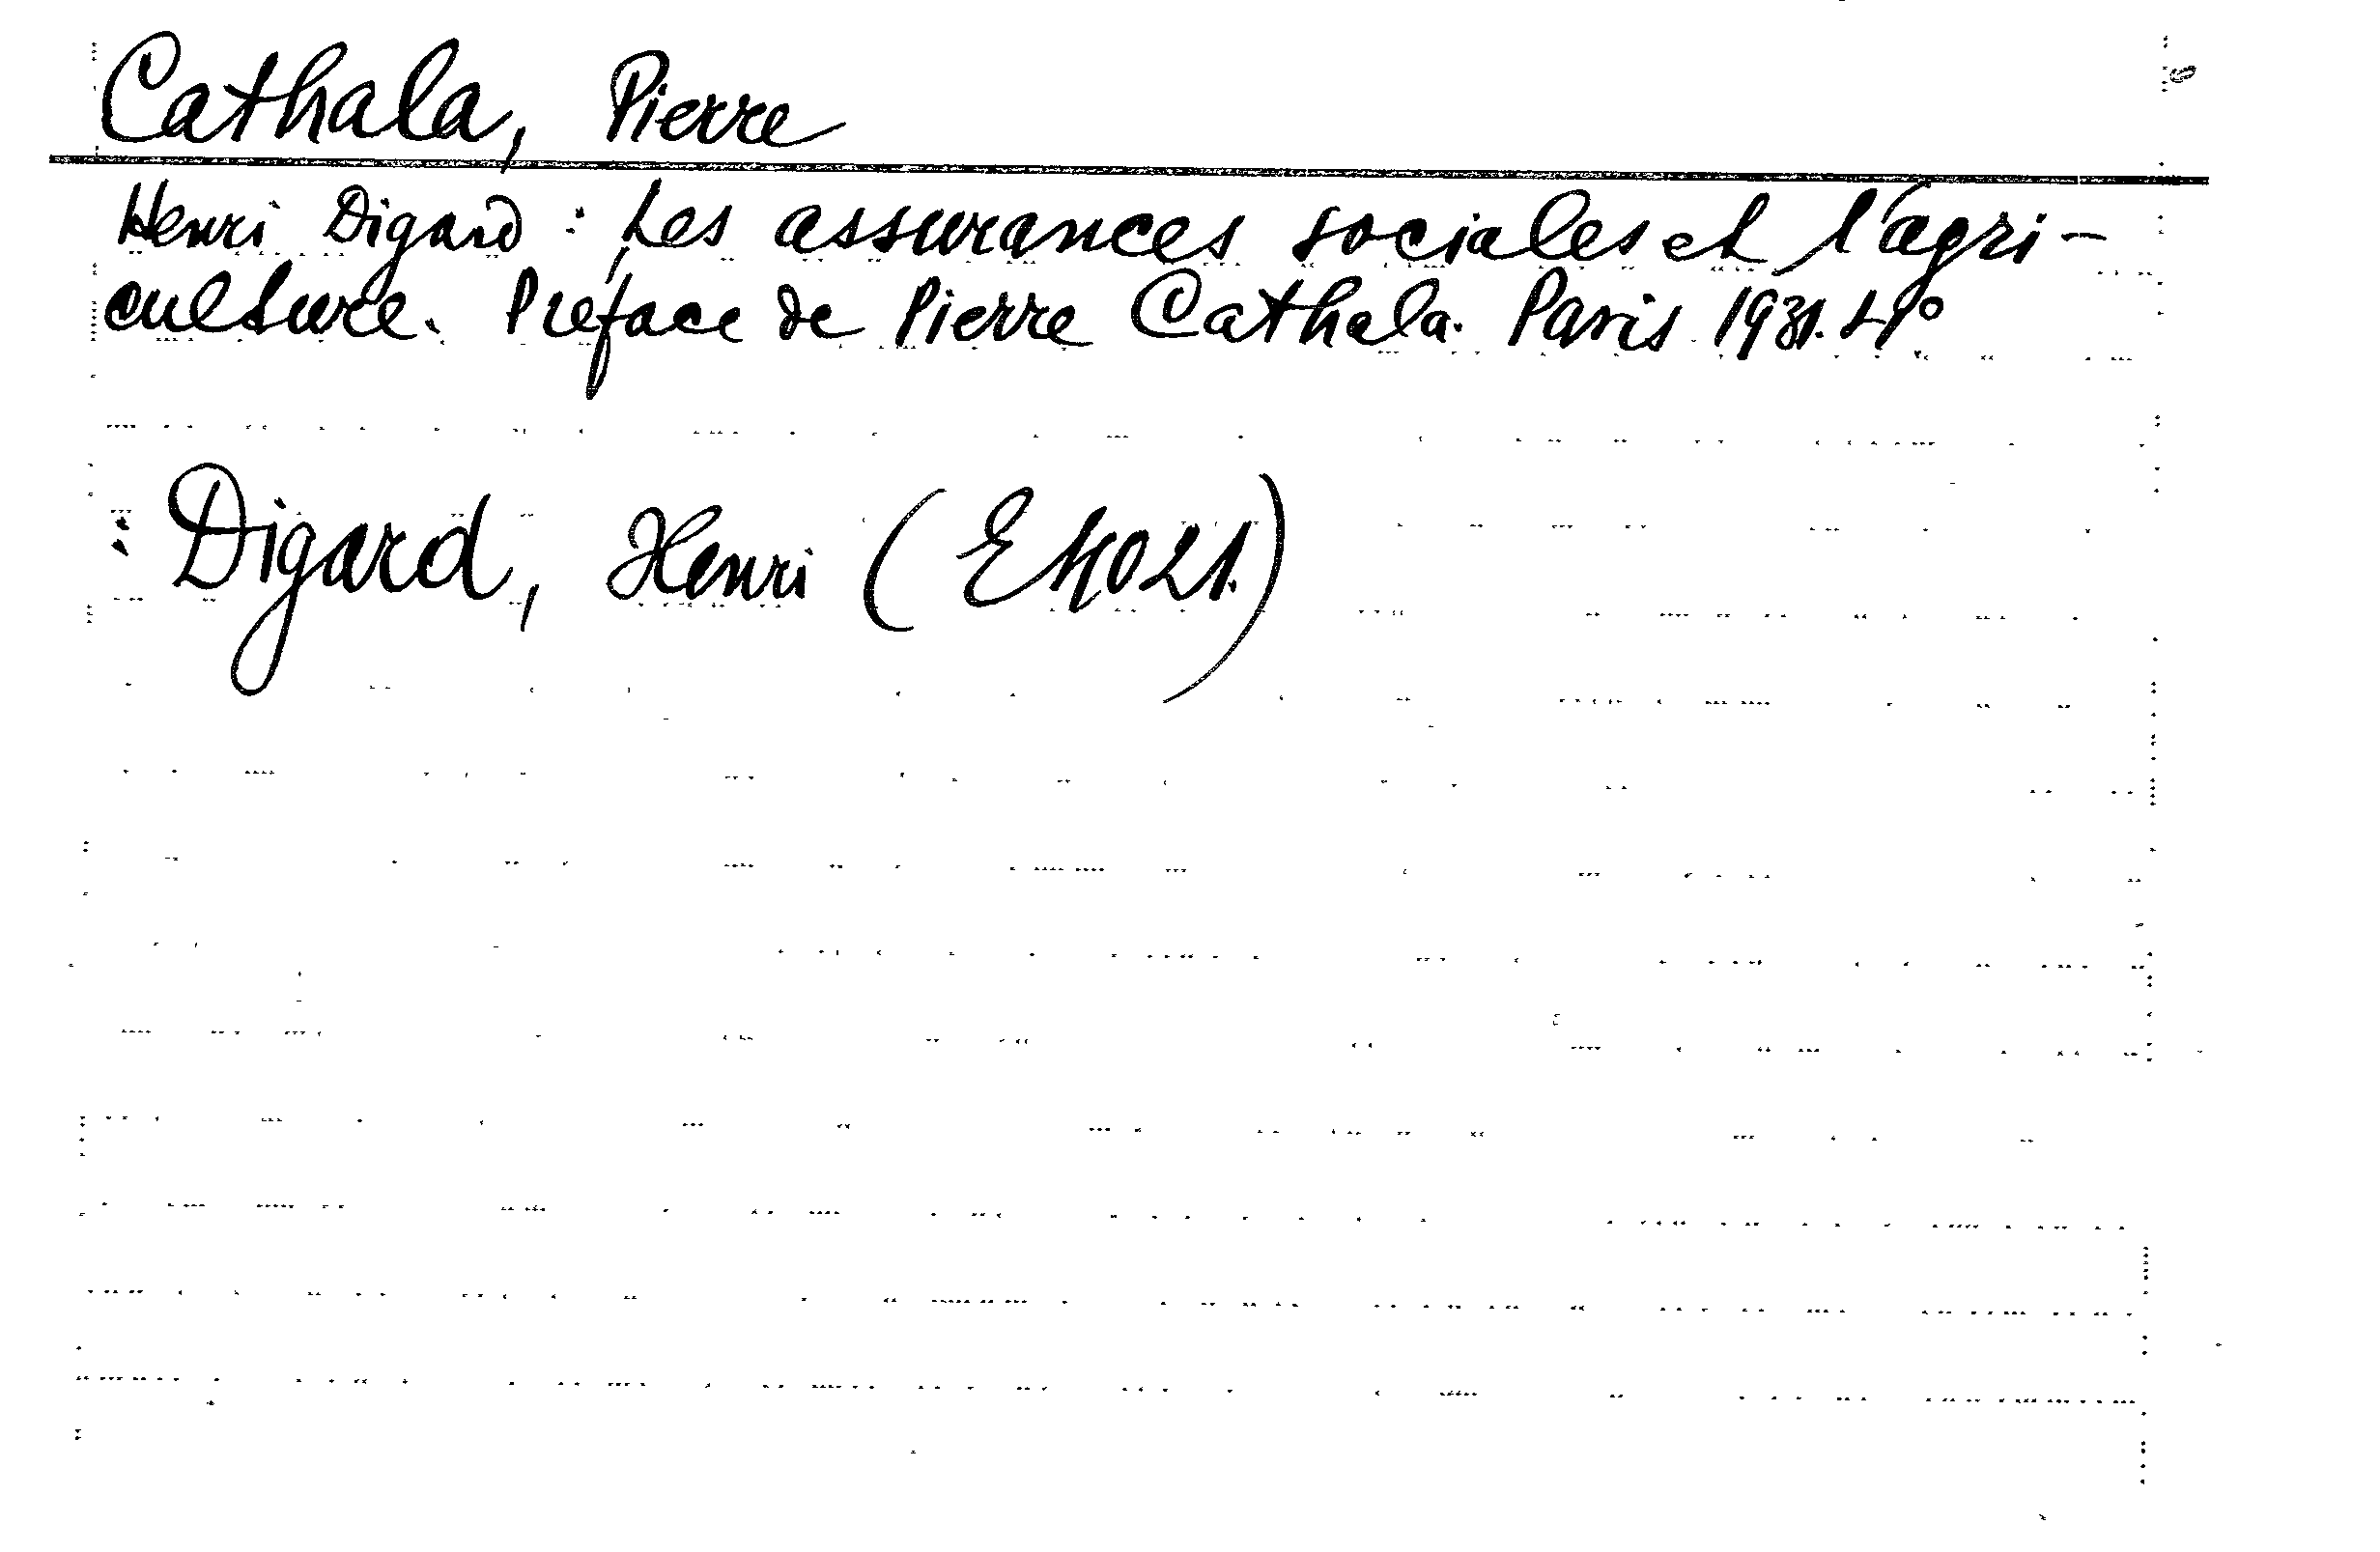 Cathala, Pierre
Henri Digard: Les assurances sociales et l'agri-
culture. Préface de Pierre Cathala. Paris 1931. 4°
: Digard, Henri (E 4021.)